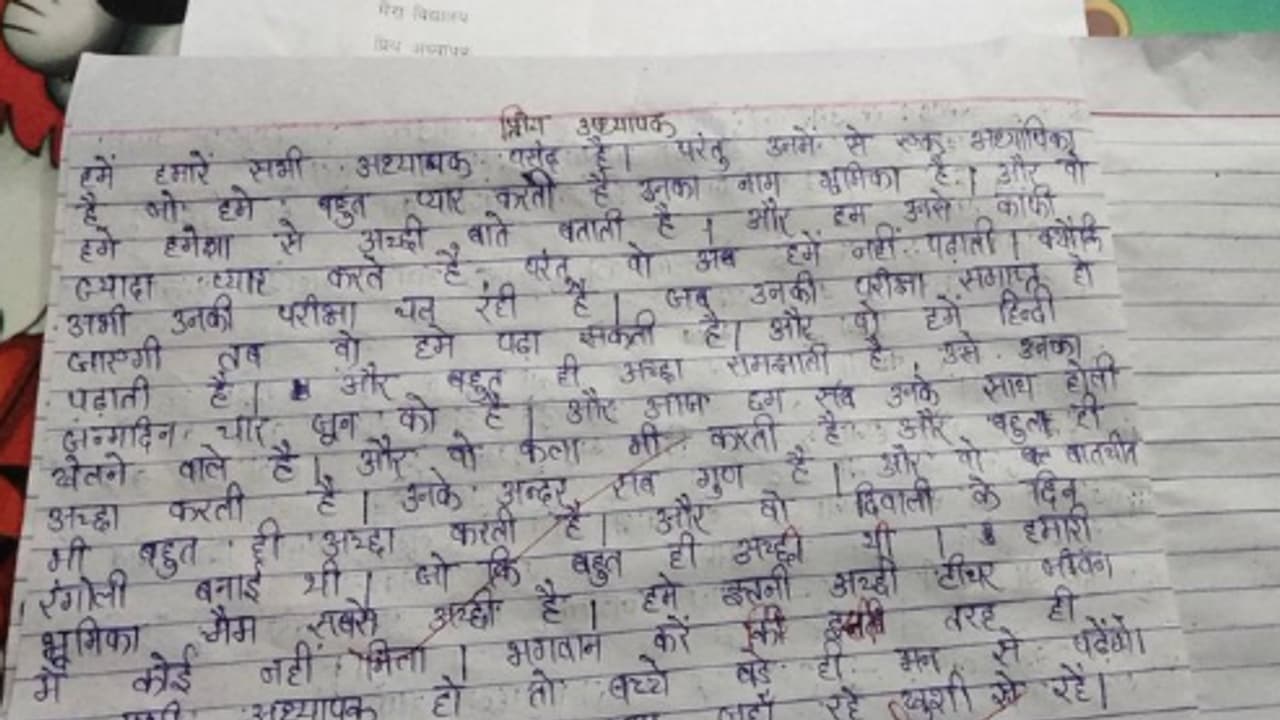 प्रिय विद्यालय
प्रिय अध्यापक
प्रिय अध्यापक
हमें हमारें सभी अध्यापक पसंद है। परंतु उनमें से एक अध्यापिका
है जो हमे बहुत प्यार करती है उनका नाम भुमिका है। और वो
हमे हमेशा से अच्छी बाते बताती है। और हम उनसे काफी
ज्यादा प्यार करते है परंतु वो अब हमें नहीं पढ़ाती। क्योंकि
अभी उनकी परीक्षा चल रही है। जब उनकी परीक्षा समाप्त हो
जाएगी तब वो हमे पढ़ा सकती है। और वो हमें हिन्दी
पढ़ाती है। और बहुत ही अच्छा समझाती है उसे उनका
जन्मदिन चार जून को है। और आज हम सब उनके साथ होली
खेलने वाले है। और वो कला भी करती है और बहुत ही
अच्छा करती है। उनके अन्दर सब गुण है। और वो बातचीत
भी बहुत ही अच्छा करती है। और वो दिवाली के दिन
रंगोली बनाई थी। जो कि बहुत ही अच्छी थी। हमारी
भूमिका मैम सबसे अच्छी है। हमे इतनी अच्छी टीचर जीवन
में कोई नहीं मिला। भगवान करें की इसी तरह ही
अध्यापक हो तो बच्चे बडे ही मन से पढ़ेंगें।
जहाँ रहे खुशी से रहें।